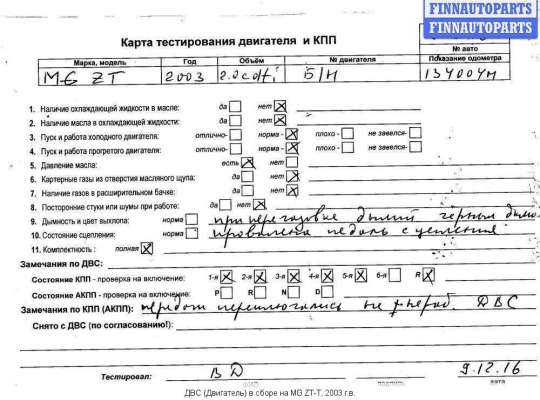 FINNAUTOPARTS
FINNAUTOPARTS
Карта тестирования двигателя и КПП
№ авто
Марка, модель Год Объём № двигателя Показание одометра
MG ZT 2003 2.0 cdti Б/Н 134004м
1. Наличие охлаждающей жидкости в масле: да нет
2. Наличие масла в охлаждающей жидкости: да нет
3. Пуск и работа холодного двигателя: отлично- норма - плохо - не завелся-
4. Пуск и работа прогретого двигателя: отлично- норма - плохо - не завелся-
5. Давление масла: есть нет
6. Картерные газы из отверстия масляного щупа: да нет
7. Наличие газов в расширительном бачке: да нет
8. Посторонние стуки или шумы при работе: да нет
9. Дымность и цвет выхлопа: норма при перегазовке дымит черным дымо
10. Состояние сцепления: норма провалена педаль сцепления
11. Комплектность : полная
Замечания по ДВС:
Состояние КПП - проверка на включение: 1-я 2-я 3-я 4-я 5-я 6-я R
Состояние АКПП - проверка на включение: P R N D
Замечания по КПП (АКПП): передачи переключались на нераб. ДВС
Снято с ДВС (по согласованию!):
Тестировал: ВД 9.12.16
ФИО подпись дата
ДВС (Двигатель) в сборе на MG ZT-T, 2003 г.в.